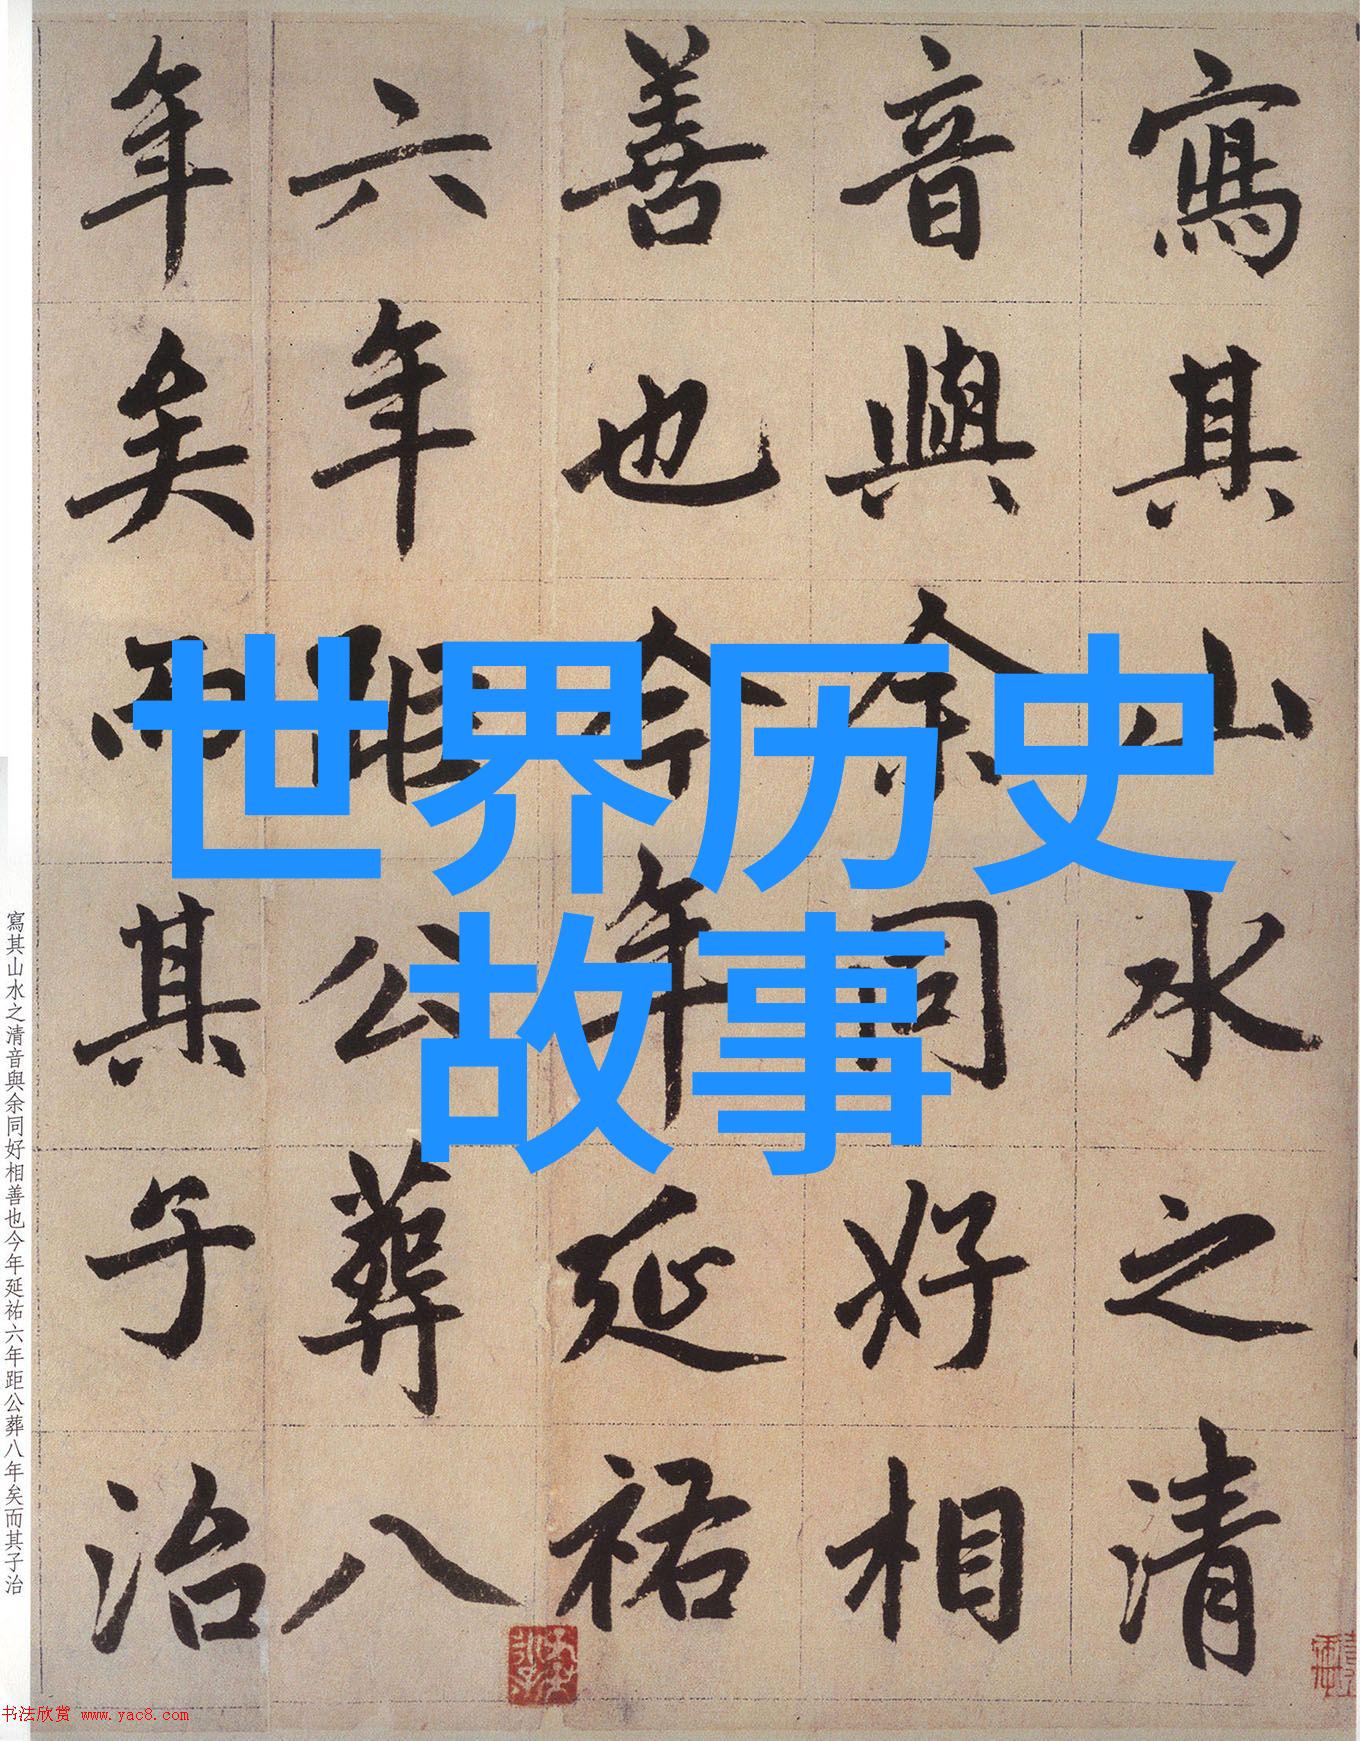 寫其山水之清
音與余同好相
善也今年延祐
六年距公葬八
年矣而其子治
世界历史
故事
寫其山水之清音與余同好相善也今年延祐六年距公葬八年矣而其子治
书法欣赏 www.yac8.com